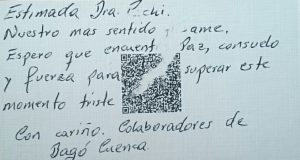 Estimada Dra.
Nuestro mas sentido
Espero que Paz, consuelo
y fuerza para superar este
momento triste
Con cariño. Colaboradores de
Bagó Cuenca